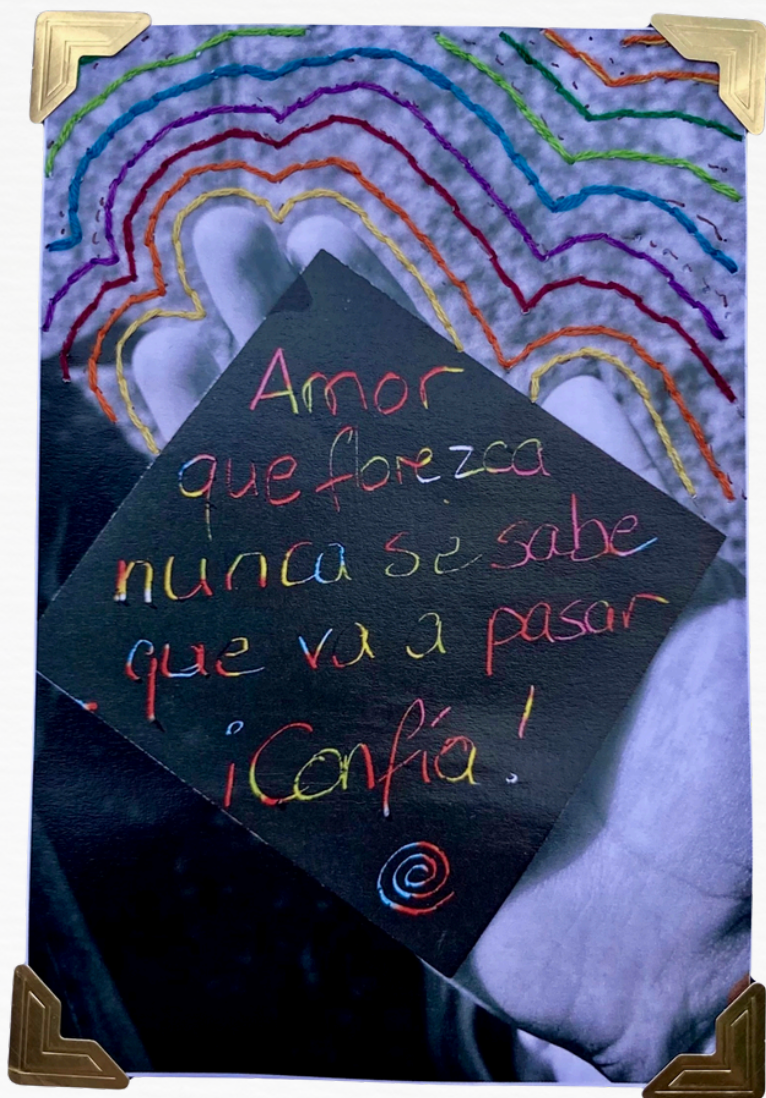 Amor
que florezca
nunca se sabe
que va a pasar
¡Confía!